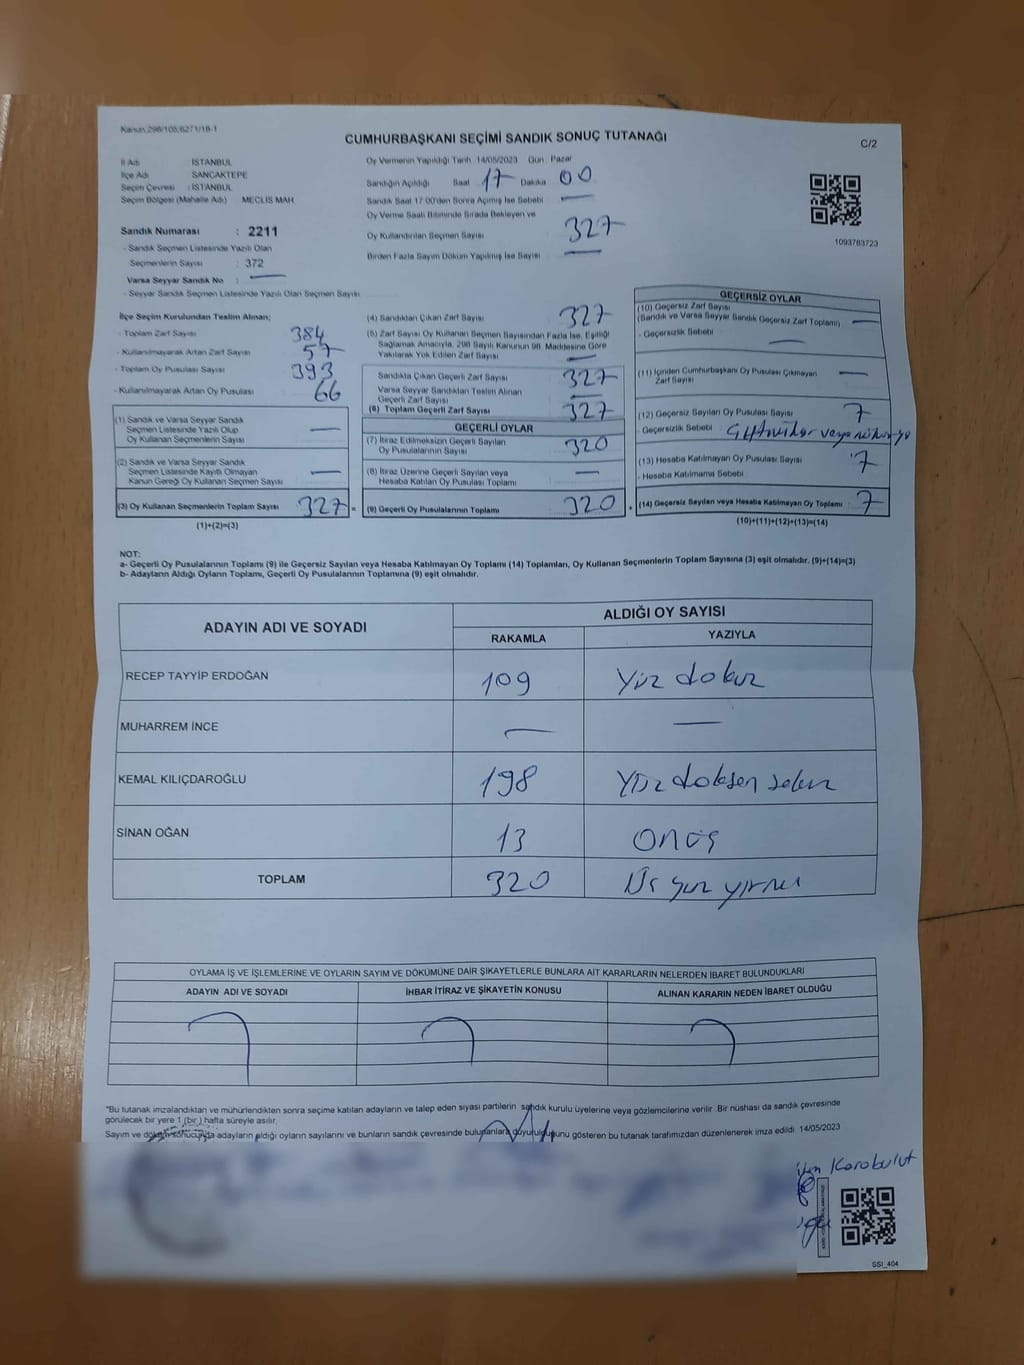 Kanun:298/105,6271/18-1
CUMHURBAŞKANI SEÇİMİ SANDIK SONUÇ TUTANAĞI
C/2
İl Adı İSTANBUL
İlçe Adı SANCAKTEPE
Seçim Çevresi : İSTANBUL
Seçim Bölgesi (Mahalle Adı) MECLİS MAH
Sandık Numarası : 2211
- Sandık Seçmen Listesinde Yazılı Olan
Seçmenlerin Sayısı : 372
Varsa Seyyar Sandık No : —
- Seyyar Sandık Seçmen Listesinde Yazılı Olan Seçmen Sayısı
Oy Vermenin Yapıldığı Tarih 14/05/2023 Gün Pazar
Sandığın Açıldığı Saat 17 Dakika 00
Sandık Saat 17:00'den Sonra Açımış İse Sebebi —
Oy Verme Saati Bitiminde Sırada Bekleyen ve
Oy Kullandırılan Seçmen Sayısı 327
Birden Fazla Sayım Döküm Yapılmış İse Sayısı —
1093783723
İlçe Seçim Kurulundan Teslim Alınan;
- Toplam Zarf Sayısı 384
- Kullanılmayarak Artan Zarf Sayısı 57
- Toplam Oy Pusulası Sayısı 393
- Kullanılmayarak Artan Oy Pusulası 66
(1) Sandık ve Varsa Seyyar Sandık
Seçmen Listesinde Yazılı Olup
Oy Kullanan Seçmenlerin Sayısı —
(2) Sandık ve Varsa Seyyar Sandık
Seçmen Listesinde Kayıtlı Olmayan
Kanun Gereği Oy Kullanan Seçmen Sayısı —
(3) Oy Kullanan Seçmenlerin Toplam Sayısı 327 =
(1)+(2)=(3)
(4) Sandıktan Çıkan Zarf Sayısı 327
(5) Zarf Sayısı Oy Kullanan Seçmen Sayısından Fazla İse, Eşitliği
Sağlamak Amacıyla, 298 Sayılı Kanunun 98. Maddesine Göre
Yakılarak Yok Edilen Zarf Sayısı —
Sandıkta Çıkan Geçerli Zarf Sayısı 327
Varsa Seyyar Sandıktan Teslim Alınan
Geçerli Zarf Sayısı —
(6) Toplam Geçerli Zarf Sayısı 327
GEÇERLİ OYLAR
(7) İtiraz Edilmeksizin Geçerli Sayılan
Oy Pusulalarının Sayısı 320
(8) İtiraz Üzerine Geçerli Sayılan veya
Hesaba Katılan Oy Pusulası Toplamı —
(9) Geçerli Oy Pusulalarının Toplamı 320 +
GEÇERSİZ OYLAR
(10) Geçersiz Zarf Sayısı
(Sandık ve Varsa Seyyar Sandık Geçersiz Zarf Toplamı) —
- Geçersizlik Sebebi —
(11) İçinden Cumhurbaşkanı Oy Pusulası Çıkmayan
Zarf Sayısı —
(12) Geçersiz Sayılan Oy Pusulası Sayısı 7
- Geçersizlik Sebebi
(13) Hesaba Katılmayan Oy Pusulası Sayısı 7
- Hesaba Katılmama Sebebi
(14) Geçersiz Sayılan veya Hesaba Katılmayan Oy Toplamı 7
(10)+(11)+(12)+(13)=(14)
NOT:
a- Geçerli Oy Pusulalarının Toplamı (9) ile Geçersiz Sayılan veya Hesaba Katılmayan Oy Toplamı (14) Toplamları, Oy Kullanan Seçmenlerin Toplam Sayısına (3) eşit olmalıdır. (9)+(14)=(3)
b- Adayların Aldığı Oyların Toplamı, Geçerli Oy Pusulalarının Toplamına (9) eşit olmalıdır.
ADAYIN ADI VE SOYADI ALDIĞI OY SAYISI
RAKAMLA YAZIYLA
RECEP TAYYİP ERDOĞAN 109 Yüz dokuz
MUHARREM İNCE — —
KEMAL KILIÇDAROĞLU 198 Yüz doksan sekiz
SİNAN OĞAN 13 onüç
TOPLAM 320 Üç yüz yirmi
OYLAMA İŞ VE İŞLEMLERİNE VE OYLARIN SAYIM VE DÖKÜMÜNE DAİR ŞİKAYETLERLE BUNLARA AİT KARARLARIN NELERDEN İBARET BULUNDUKLARI
ADAYIN ADI VE SOYADI İHBAR İTİRAZ VE ŞİKAYETİN KONUSU ALINAN KARARIN NEDEN İBARET OLDUĞU
"Bu tutanak imzalandıktan ve mühürlendikten sonra seçime katılan adayların ve talep eden siyasi partilerin sandık kurulu üyelerine veya gözlemcilerine verilir. Bir nüshası da sandık çevresinde
görülecek bir yere 1 (bir ) hafta süreyle asılır.
Sayım ve döküm sonucunda adayların aldığı oyların sayılarını ve bunların sandık çevresinde bulunanlara duyurulduğunu gösteren bu tutanak tarafımızdan düzenlenerek imza edildi 14/05/2023
Karabulut
SSI_404